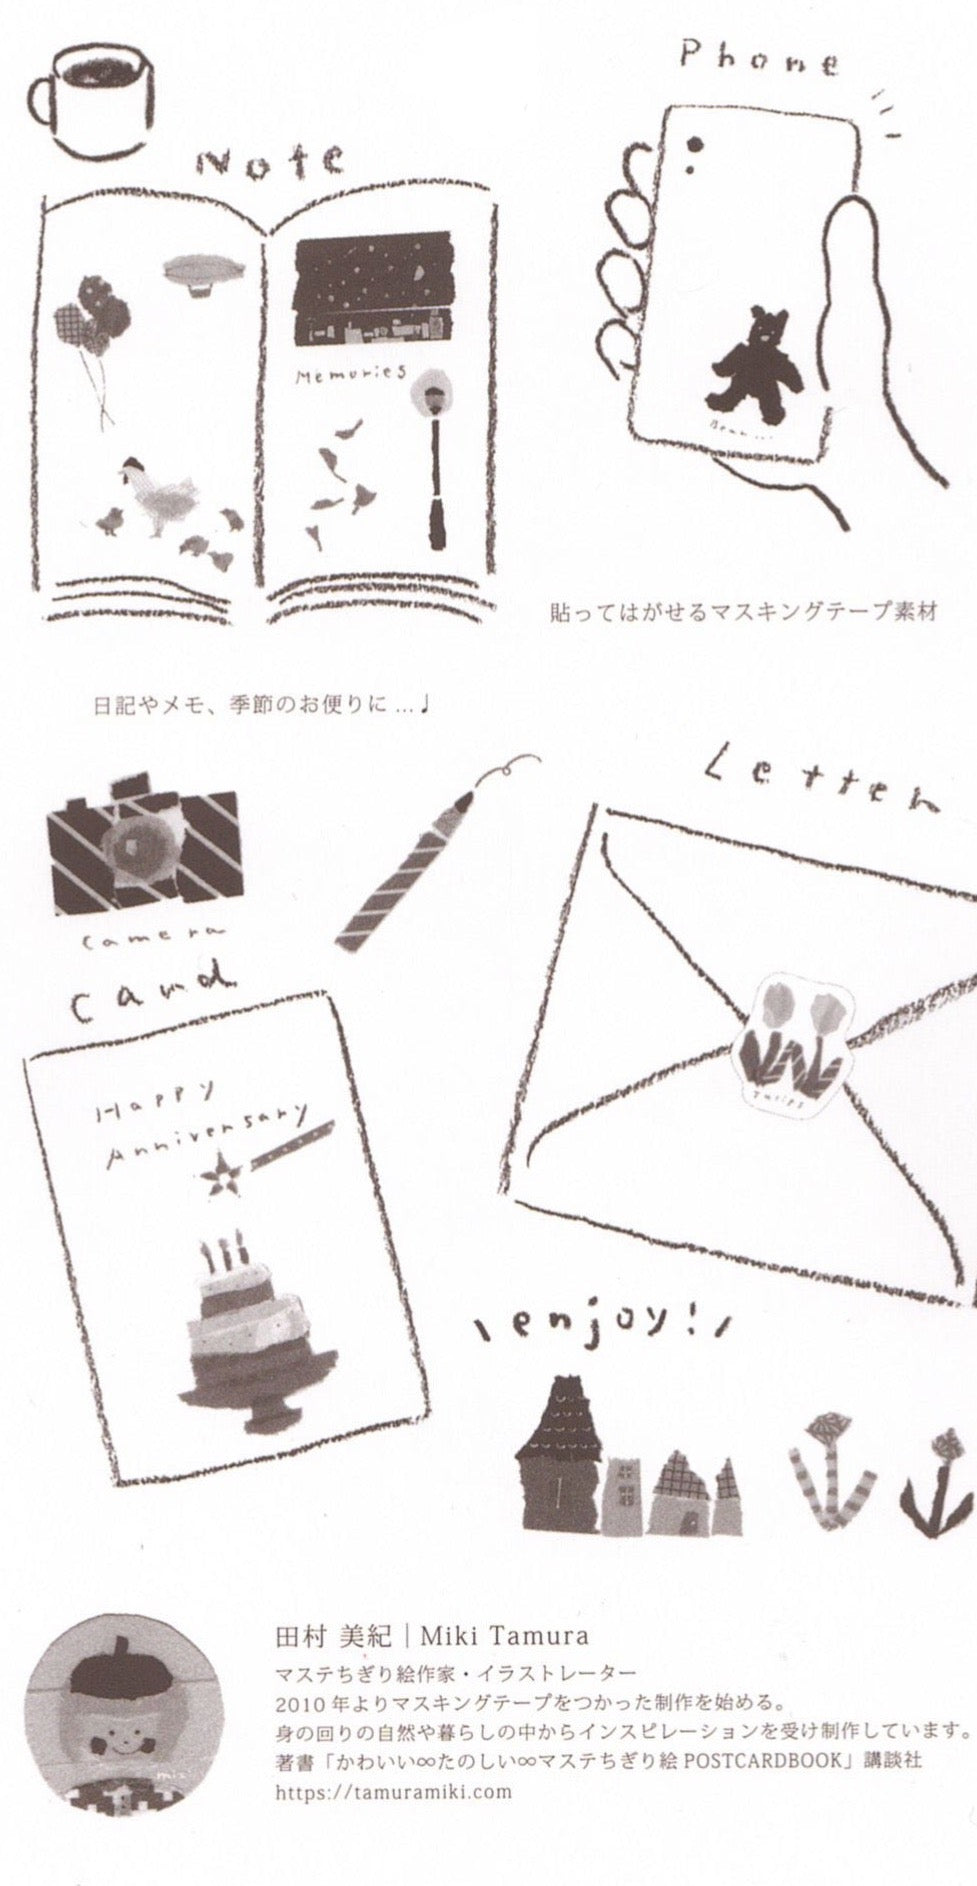 Phone
Note
Memories
Bear...
貼ってはがせるマスキングテープ素材
日記やメモ、季節のお便りに ...♩
Letter
camera
card
Happy
Anniversary
Tulips
\enjoy!/
田村 美紀｜Miki Tamura
マステちぎり絵作家・イラストレーター
2010 年よりマスキングテープをつかった制作を始める。
身の回りの自然や暮らしの中からインスピレーションを受け制作しています。
著書「かわいい∞たのしい∞マステちぎり絵 POSTCARDBOOK」講談社
https://tamuramiki.com